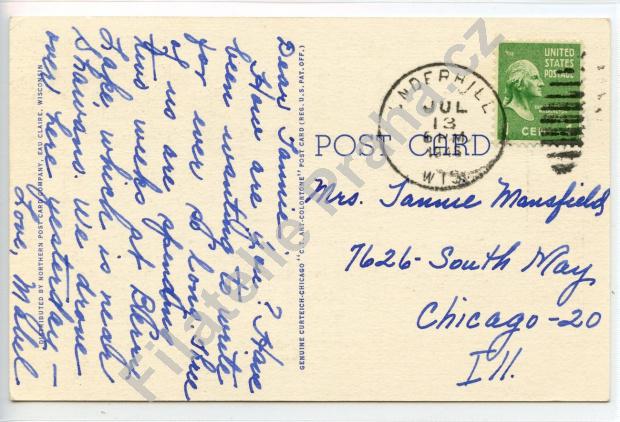 Dear Fannie,
How are you? Have
been wanting to write
for ever so long. Three
of us are spending
two weeks at Berry
Lake which is near
Shawano. We drove
over here yesterday —
Love, Mabel
DISTRIBUTED BY NORTHERN POST CARD COMPANY, EAU CLAIRE, WISCONSIN
GENUINE CURTEICH-CHICAGO "C.T. ART-COLORTONE" POST CARD (REG. U.S. PAT. OFF.)
POST CARD
UNDERHILL
JUL
13
WIS.
UNITED
STATES
POSTAGE
CENT
Mrs. Fannie Mansfield
7626-South May
Chicago-20
Ill.
Filatelie Praha.cz